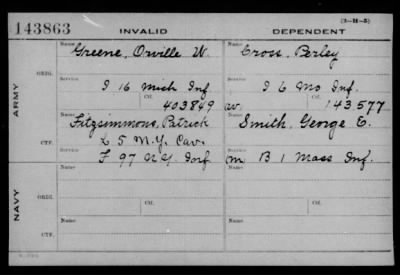 (3-11-5)
143863 INVALID DEPENDENT
Name Greene, Orville W. Name Cross, Perley
ORIG.
Service I 16 Mich Inf Service I 6 Mo Inf.
Ctf. 403849 W. Ctf. 143577
ARMY
Name Fitzsimmons, Patrick Name Smith, George E.
L 5 N.Y. Cav.
CTF.
F 97 N.Y. Inf m. B 1 Mass Inf.
Name Name
ORIG.
Service Service
NAVY
Ctf. Ctf.
Name Name
CTF.